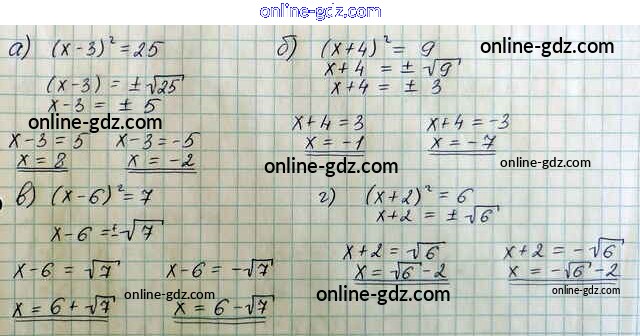 online-gdz.com
а) (x-3)² = 25
(x-3) = ±√25
x-3 = ± 5
online-gdz.com
x-3 = 5 x-3 = -5
x = 8 x = -2
б) (x+4)² = 9 online-gdz.com
x+4 = ± √9
x+4 = ± 3
x+4 = 3 x+4 = -3
x = -1 x = -7
online-gdz.com online-gdz.com
в) (x-6)² = 7
x-6 = ±√7
x-6 = √7 x-6 = -√7
online-gdz.com
x = 6+√7 x = 6-√7
г) (x+2)² = 6
x+2 = ± √6
x+2 = √6 x+2 = -√6
x = √6 -2 x = -√6 -2
online-gdz.com online-gdz.com